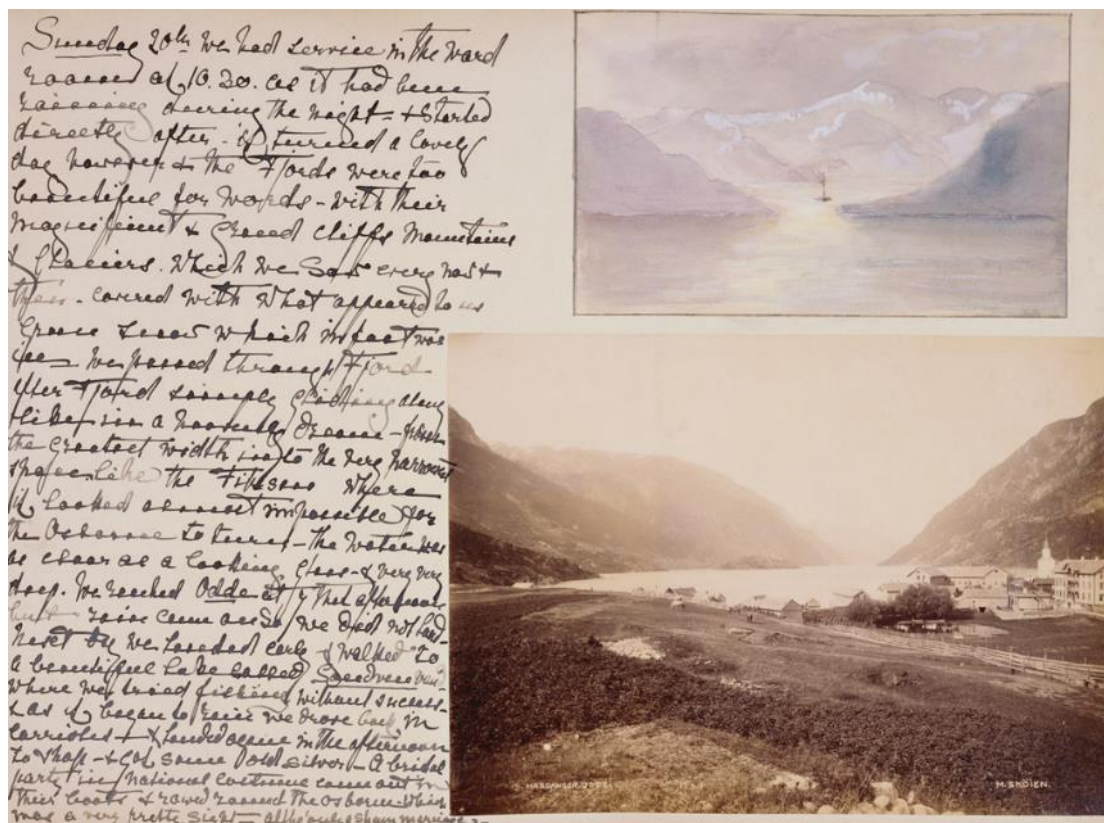 Sunday 20th we had service in the ward
room at 10.20. as it had been
raining during the night - & started
directly after - it turned a lovely
day however & the Fjords were too
beautiful for words - with their
magnificent & grand cliffs mountains
& glaciers. which we saw every now &
then - covered with what appeared to us
snow which in fact was
ice - we passed through Fjord
after Fjord simply gliding along
like in a dream - from
the greatest width into the very narrowest
space like the where
it looked almost impossible for
the Osborne to turn - the water was
as clear as a looking glass - & very very
deep. We reached Odde at 7 the afternoon
but rain came on So we did not land -
next day we landed early & walked to
a beautiful lake called
where we tried fishing without success -
& as it began to rain we drove back in
carrioles & landed again in the afternoon
to shop - & got some old silver - A bridal
party in national costume came out in
their boats & rowed round the Osborne which
was a very pretty sight - only a sham marriage
HARDANGER. ODDE.
M. SKÖIEN.